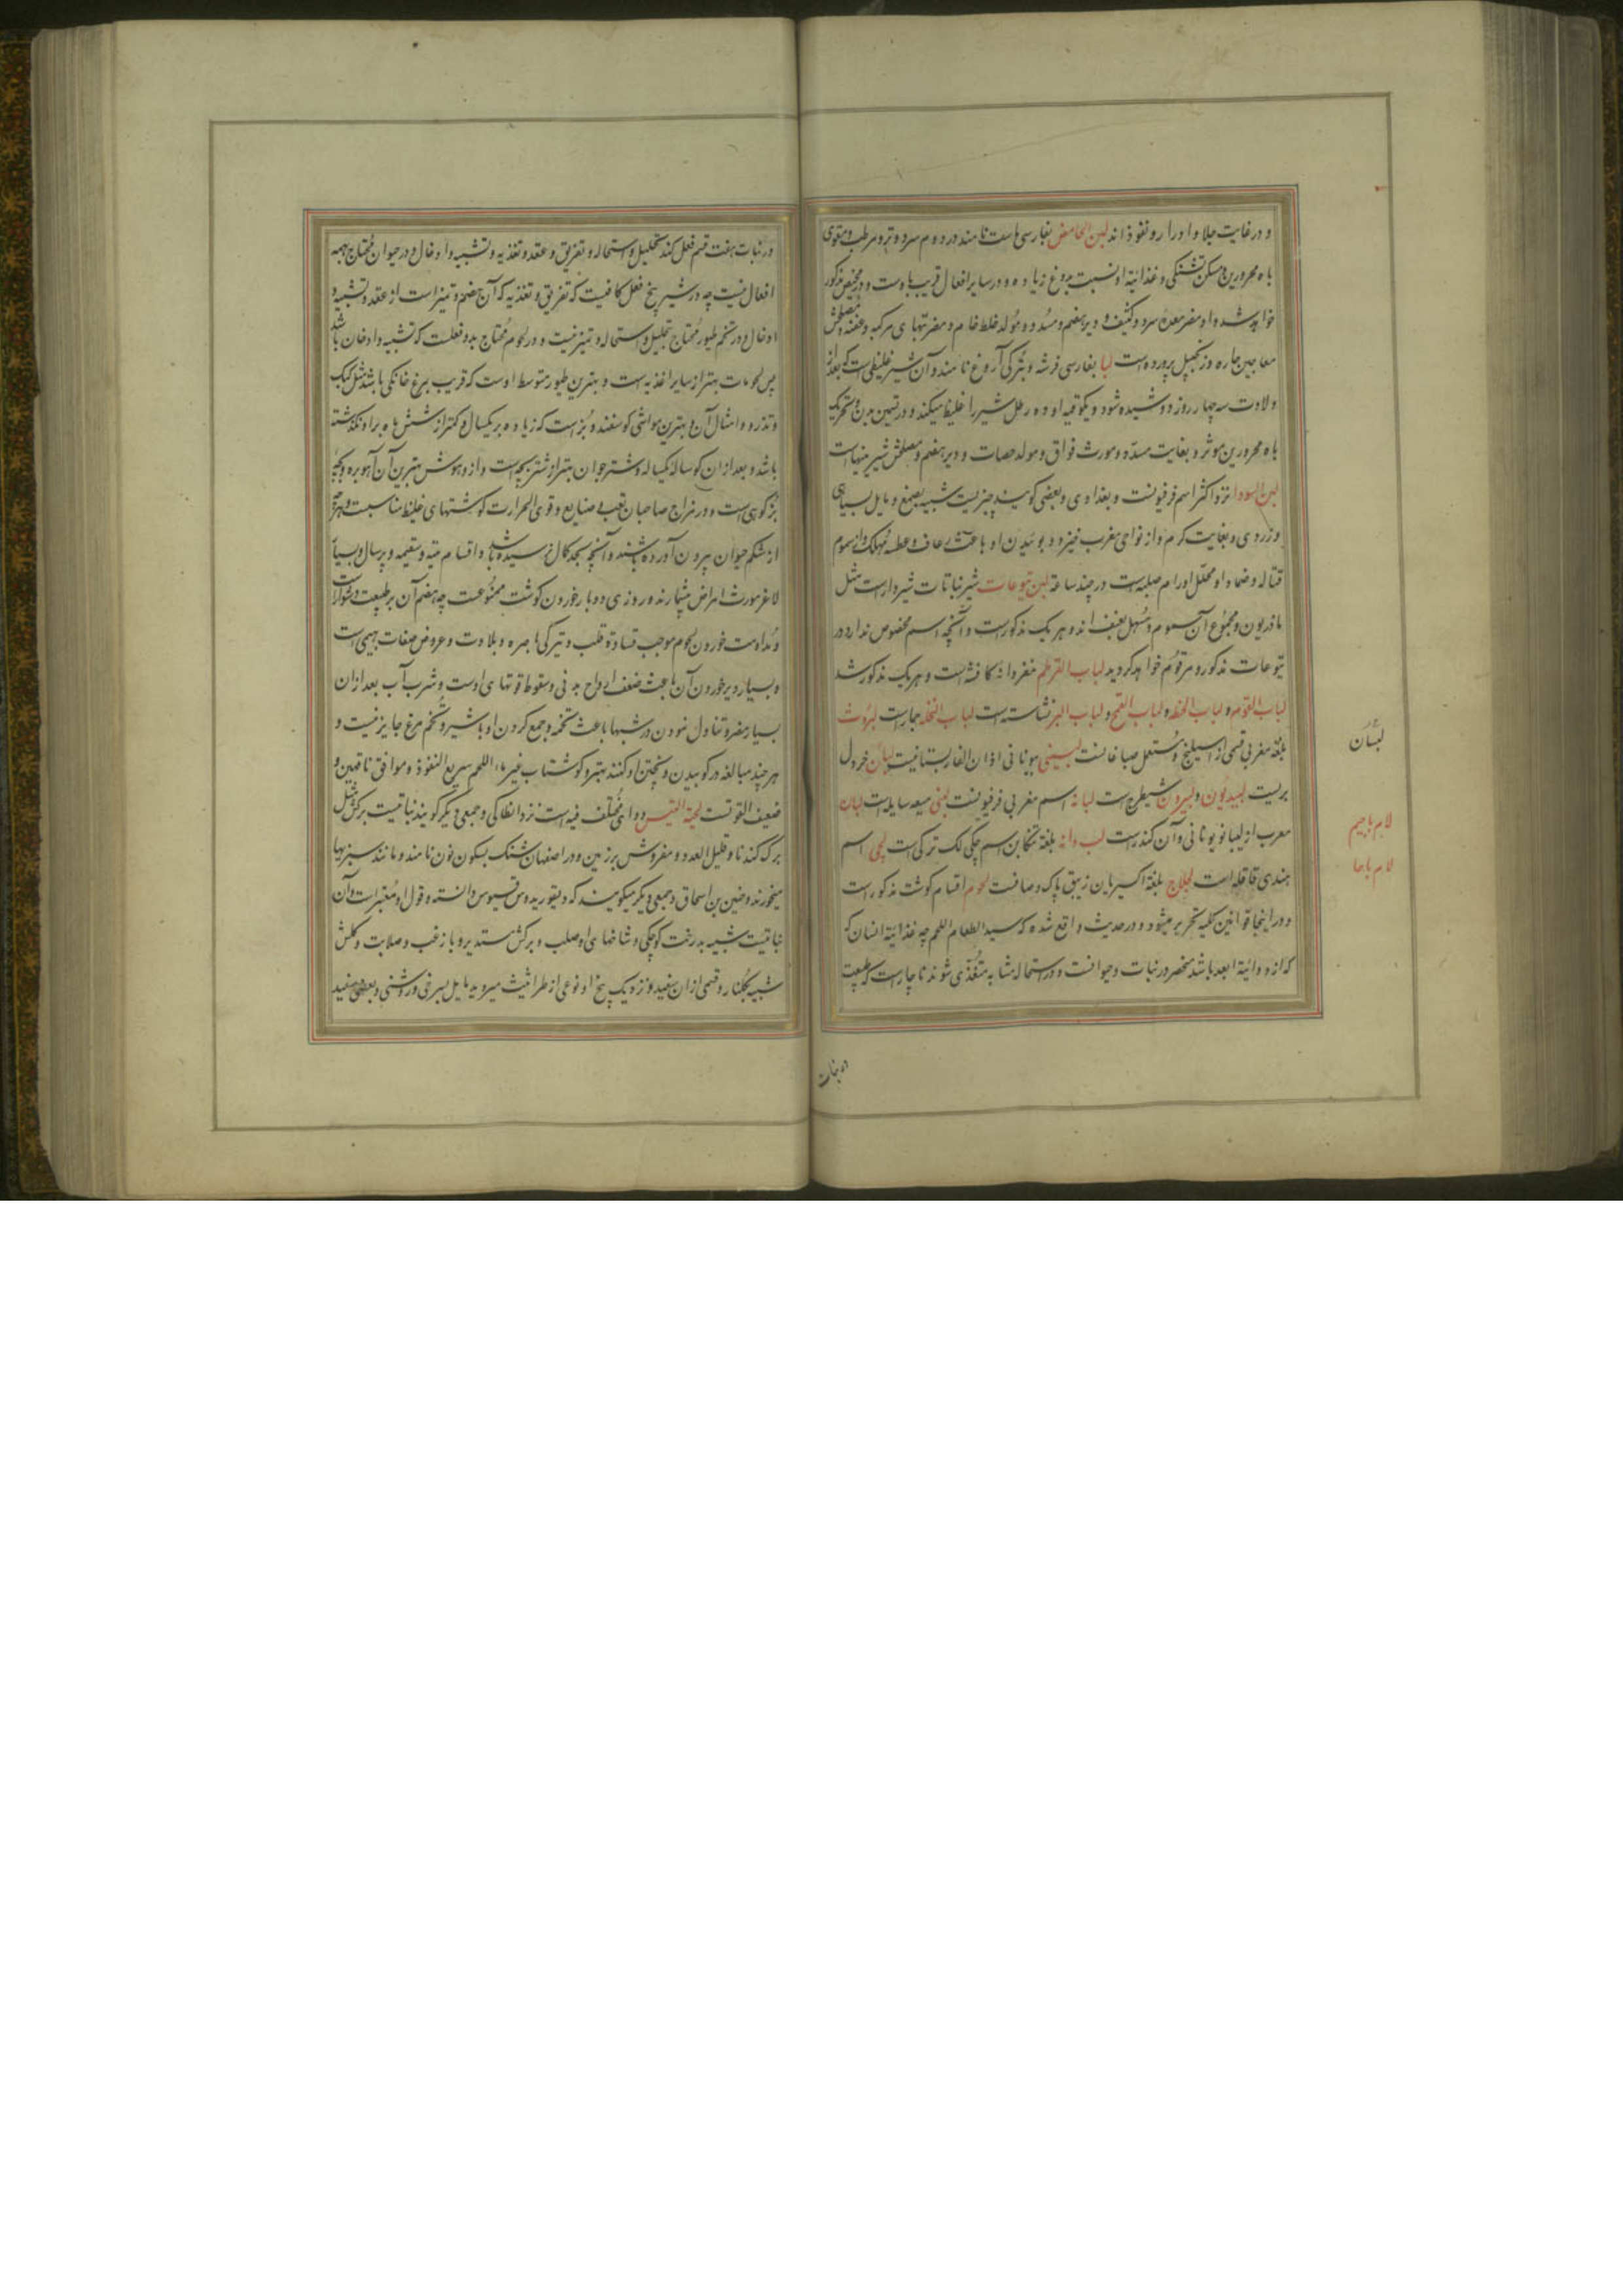 و در غایت جلا و ادرار و نفوذ اند لبن الحامض بفارسی ماست نامند در دوم سرد و تر و مرطب و مقوی
باه محرورین و مسکن تشنکی و غذائیة او نسبت بدوغ زیاده و در سایر افعال قریب باوست و در مخیض مذکور
خواهد شد و او مضر معدۀ سرد و کثیف و دیرهضم و مسدد و مولد خلط خام و مضرتهای مرکبه و عفنه و مصلحش
معاجین حاره و زنجبیل پرورده است لبا بفارسی فرشه و بترکی آروغ نامند و آن شیر غلیظی است که بعد از
ولادت سه چهار روز دوشیده شود و یکوقیه او ده رطل شیر را غلیظ میکند و در تسمین بدن و تحریک
باه محرورین موثر و بغایت مسدد و مورث فواق و مولد حصات و دیرهضم و مصلحش شیرینیهاست
لبن السودا نزد اکثر اسم فرفیونست و بغدادی و بعضی کویند چیزیست شبیه بصمغ و مایل بسیاهی
و زردی و بغایت کرم و از نوای مغرب خیزد و بوئیدن او باعث رعاف و عطسه مهلک و از سموم
قتاله و ضماد او محلل اورام صلبه است در چند ساعة لبن یتوعات شیر نباتات شیردار است مثل
مازریون و مجموع آن سموم و مسهل بعنف اند و هر یک مذکور است و آنچه اسم مخصوص ندارد در
یتوعات مذکور و مرقوم خواهد کردید لباب القرطم مغز دانۀ کافشه است و هر یک مذکور شد
لباب القوم و لباب الحنطه و لباب القمح و لباب البر نشاسته است لباب النخله جمار است لبروث
بلغة مغربی قسمی از اسیلیخ و مستعمل صباغانست لبسینی بیونانی اذان الفار بستانیست لبسان خردل
بریست لبیدیون و لیبرون شیطرج است لبانۀ اسم مغربی فرفیونست لبنی میعه سایله است لبان
معرب از لیبانو یونانی و آن کندر است لب دانه بلغة تنکابن اسم چکی لک ترکی است لچی اسم
هندی قاقله است لجلاج بلغة اکسیریان زیبق پاک و صافست لحوم اقسام کوشت مذکور است
و در اینجا قوانین کلیه تحریر میشود و در حدیث واقع شده که سید الطعام اللحم چه غذائیة انسان که
که از دوائیة ابعد باشد منحصر در نبات و حیوانست و در استحاله مشابه متغذی شوند ناچار است که طبیعت
لبسان
لام با جیم
لام با حا
در نبات
در نبات هفت قسم فعل کند تحلیل و استحاله و تفریق و عقد و تغذیه و تشبیه و ادخال و در حیوان محتاج بهمه
افعال نیست چه در شیر پنج فعل کافیست که تفریق و تغذیه که آن هضم و تمیز است از عقد و تشبیه و
ادخال و در تخم طیور محتاج تحلیل و استحاله و تمیز نیست و در لحوم محتاج بدو فعلست که تشبیه و ادخال باشد
پس لحومات بهتر از سایر اغذیه است و بهترین طیور متوسط اوست که قریب بمرغ خانکی باشد مثل کبک
و تذرو و امثال آن و بهترین مواشی کوسفند و بز است که زیاده بر یکسال و کمتر از شش ماه بر او نکذشته
باشد و بعد از ان کوسالۀ یکساله و شتر جوان بهتر از شتر بچه است و از وحوش بهترین آن آهو بره و بچه
بز کوهی است و در مزاج صاحبان تعب صنایع و قوی الحرارت کوشتهای غلیظ مناسبست و هرچه
از شکم حیوان بیرون آورده باشند و آنچه بحد کمال نرسیده باشد و اقسام میته و سقیمه و پرسال و بسیار
لاغر مورث امراض میشمارند و روزی دو بار خوردن کوشت ممنوعست چه هضم آن بر طبیعت دشوار است
و مداومت خوردن لحوم موجب قساوة قلب و تیرکی باصره و بلادت و عروض صفات بهیمی است
و بسیار دیر خوردن آن باعث ضعف ارواح بدنی و سقوط قوتهای اوست و شرب آب بعد از ان
بسیار مضر و تناول نمودن در شبها باعث تخمه و جمع کردن او با شیر و تخم مرغ جایز نیست و
هر چند مبالغه در کوبیدن و پختن او کنند بهتر و کوشتاب غیر ماء اللحم سریع النفوذ و موافق ناقهین و
ضعیف القوتست لحیة التیس دوای مختلف فیه است نزد انطاکی و جمعی دیکر کویند نباتیست برکش مثل
برک کندنا و قلیل العدد و مفروش بر زمین و در اصفهان شنک بسکون نون نامند و مانند سبزیها
میخورند و حنین بن اسحاق و جمعی دیکر میکویند که دیقوریدوس قسیوس دانسته و قول او معتبر است و آن
نباتیست شبیه بدرخت کوچکی و شاخهای او صلب و برکش مستدیر و با زغب و صلابت و کلش
شبیه بکلنار و قسمی از ان سفید و نزدیک بیخ او نوعی از طراثیث میروید مایل بسرخی و روشنی و بعضی سفید